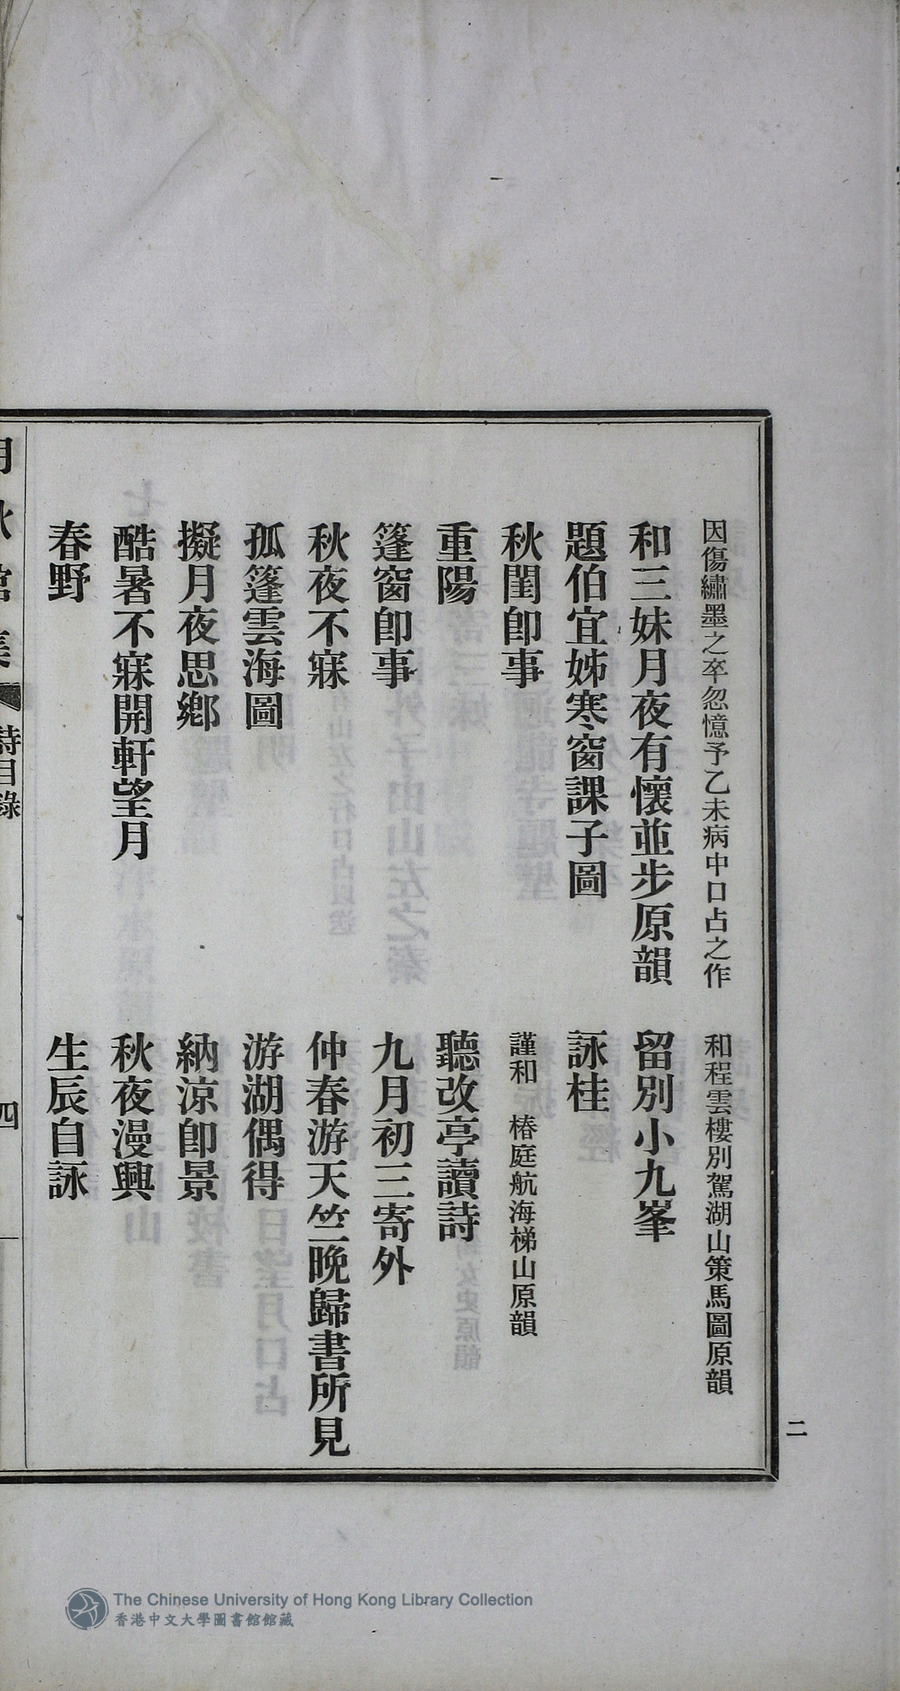 因傷繡墨之卒忽憶予乙未病中口占之作
和程雲樓別駕湖山策馬圖原韻
和三妹月夜有懷並步原韻
留別小九峯
題伯宜姊寒窗課子圖
詠桂
秋閨卽事
謹和 椿庭航海梯山原韻
重陽
聽改亭讀詩
篷窗卽事
九月初三寄外
秋夜不寐
仲春游天竺晚歸書所見
孤篷雲海圖
游湖偶得
擬月夜思鄉
納涼卽景
酷暑不寐開軒望月
秋夜漫興
春野
生辰自詠
詩目錄
四
二
The Chinese University of Hong Kong Library Collection
香港中文大學圖書館館藏